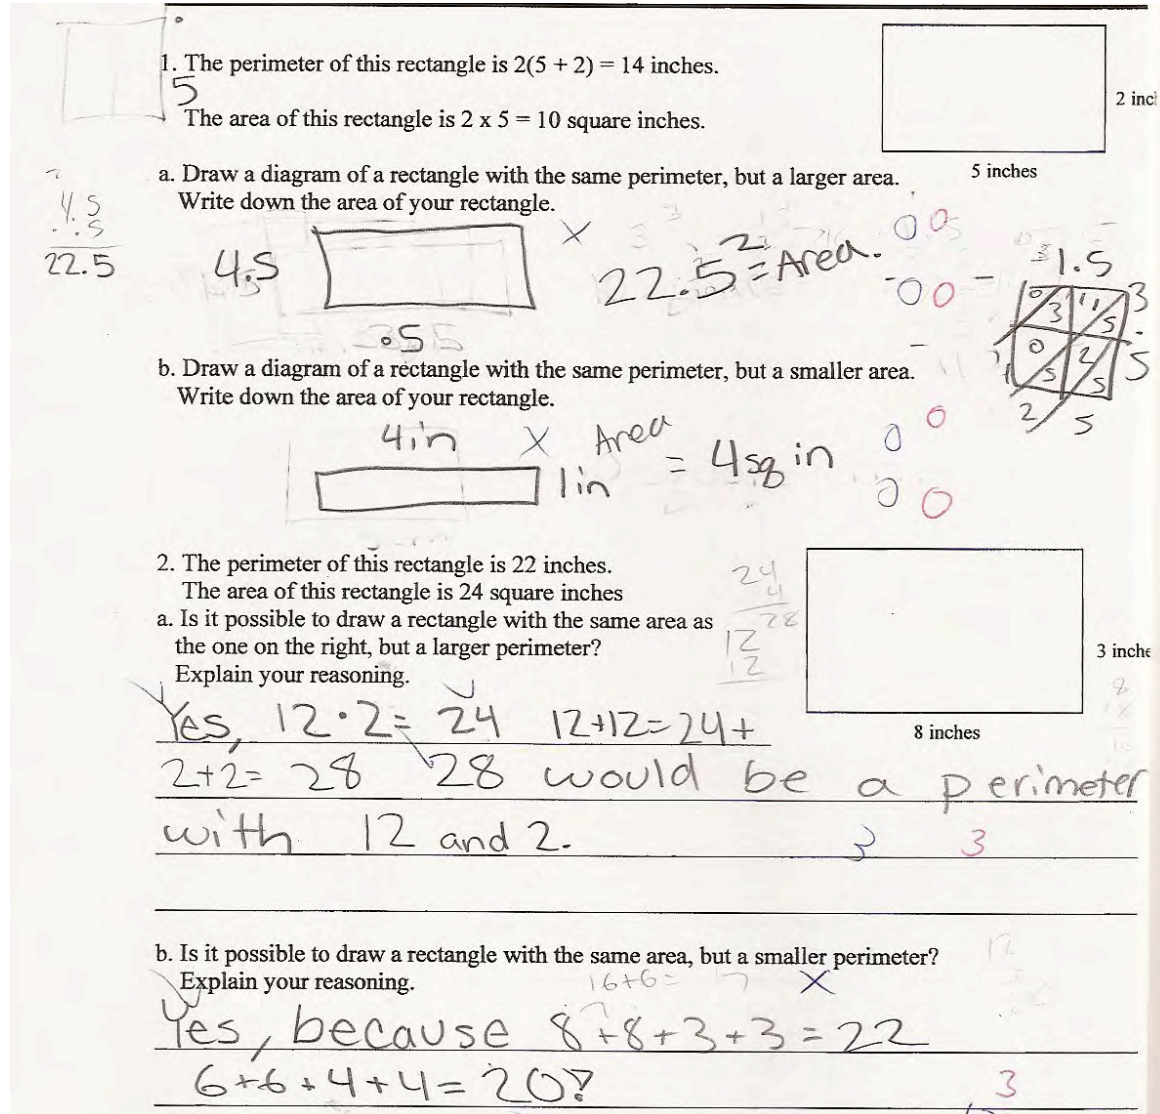 1. The perimeter of this rectangle is 2(5 + 2) = 14 inches.
5
The area of this rectangle is 2 x 5 = 10 square inches.
2 inc
5 inches
a. Draw a diagram of a rectangle with the same perimeter, but a larger area.
Write down the area of your rectangle.
4.5
.5
22.5
4.5
.5
X
22.5² = Area.
0 0
0 0
1.5
0 3 1 5 3
0 5 2 5 .5
2 5
b. Draw a diagram of a rectangle with the same perimeter, but a smaller area.
Write down the area of your rectangle.
4in X Area
1in = 4sq in
0 0
0 0
2. The perimeter of this rectangle is 22 inches.
The area of this rectangle is 24 square inches
a. Is it possible to draw a rectangle with the same area as
the one on the right, but a larger perimeter?
Explain your reasoning.
24
4
28
12
12
3 inche
8 inches
Yes, 12·2= 24 12+12=24+
2+2= 28 28 would be a perimeter
with 12 and 2. 3 3
b. Is it possible to draw a rectangle with the same area, but a smaller perimeter?
Explain your reasoning. 16+6= X
Yes, because 8+8+3+3=22
6+6+4+4=20? 3